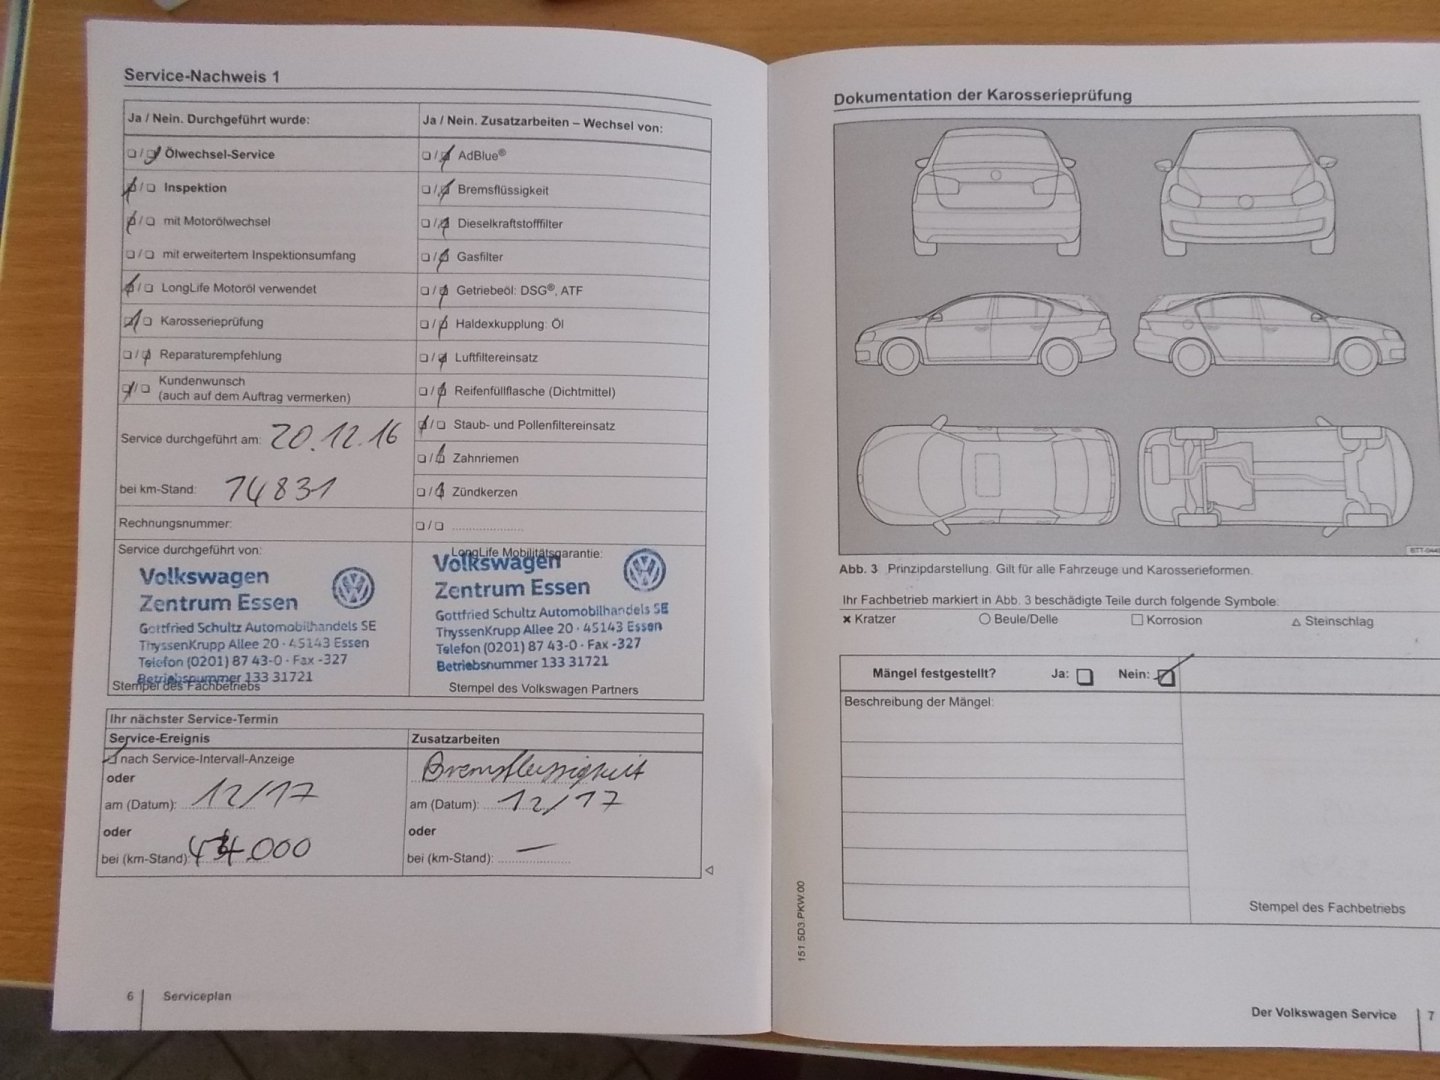 Service-Nachweis 1
Ja / Nein. Durchgeführt wurde:
❏ / ❏ Ölwechsel-Service
❏ / ❏ Inspektion
❏ / ❏ mit Motorölwechsel
❏ / ❏ mit erweitertem Inspektionsumfang
❏ / ❏ LongLife Motoröl verwendet
❏ / ❏ Karosserieprüfung
❏ / ❏ Reparaturempfehlung
❏ / ❏ Kundenwunsch
(auch auf dem Auftrag vermerken)
Service durchgeführt am: 20.12.16
bei km-Stand: 14831
Rechnungsnummer:
Service durchgeführt von:
Volkswagen
Zentrum Essen
Gottfried Schultz Automobilhandels SE
ThyssenKrupp Allee 20 · 45143 Essen
Telefon (0201) 87 43-0 · Fax -327
Betriebsnummer 133 31721
Stempel des Fachbetriebs
Ja / Nein. Zusatzarbeiten – Wechsel von:
❏ / ❏ AdBlue®
❏ / ❏ Bremsflüssigkeit
❏ / ❏ Dieselkraftstofffilter
❏ / ❏ Gasfilter
❏ / ❏ Getriebeöl: DSG®, ATF
❏ / ❏ Haldexkupplung: Öl
❏ / ❏ Luftfiltereinsatz
❏ / ❏ Reifenfüllflasche (Dichtmittel)
❏ / ❏ Staub- und Pollenfiltereinsatz
❏ / ❏ Zahnriemen
❏ / ❏ Zündkerzen
❏ / ❏ ......................
LongLife Mobilitätsgarantie:
Volkswagen
Zentrum Essen
Gottfried Schultz Automobilhandels SE
ThyssenKrupp Allee 20 · 45143 Essen
Telefon (0201) 87 43-0 · Fax -327
Betriebsnummer 133 31721
Stempel des Volkswagen Partners
Ihr nächster Service-Termin
Service-Ereignis
❏ nach Service-Intervall-Anzeige
oder
am (Datum): 12/17
oder
bei (km-Stand): .000
Zusatzarbeiten
Bremsflüssigkeit
am (Datum): 12/17
oder
bei (km-Stand): —
6 Serviceplan
Dokumentation der Karosserieprüfung
Abb. 3 Prinzipdarstellung. Gilt für alle Fahrzeuge und Karosserieformen.
Ihr Fachbetrieb markiert in Abb. 3 beschädigte Teile durch folgende Symbole:
✖ Kratzer ○ Beule/Delle □ Korrosion △ Steinschlag
Mängel festgestellt? Ja: ❏ Nein: ❏
Beschreibung der Mängel:
Stempel des Fachbetriebs
151.5D3.PKW.00
Der Volkswagen Service 7